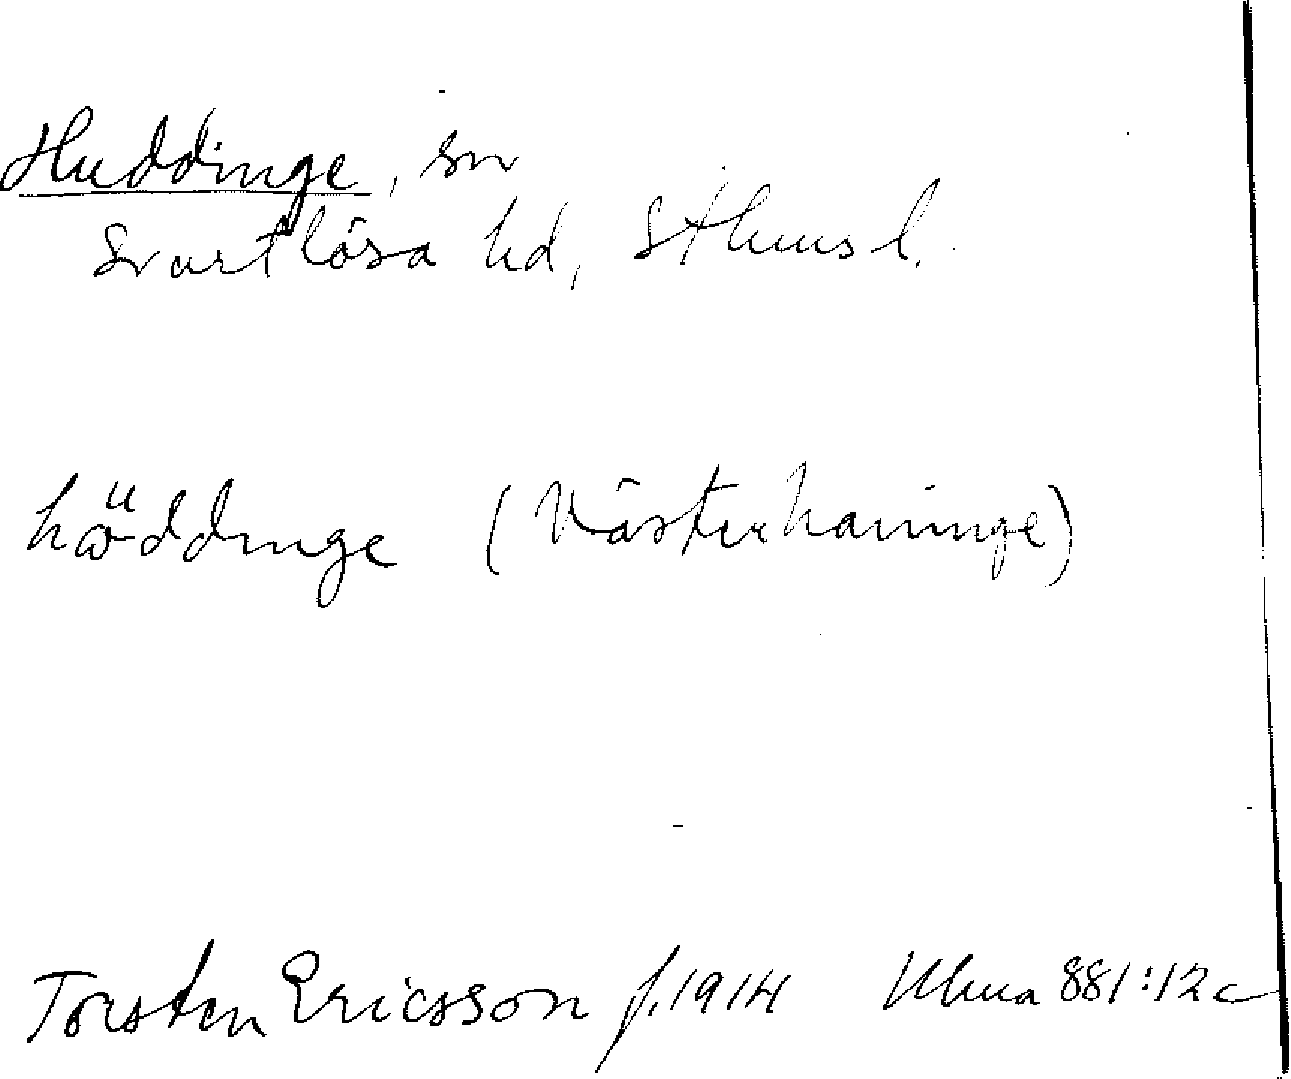 Huddinge, sn
Svartlösa hd, Sthms l.
(Västerhaninge)
Torsten Ericsson f. 1914 Ulma 881:12c